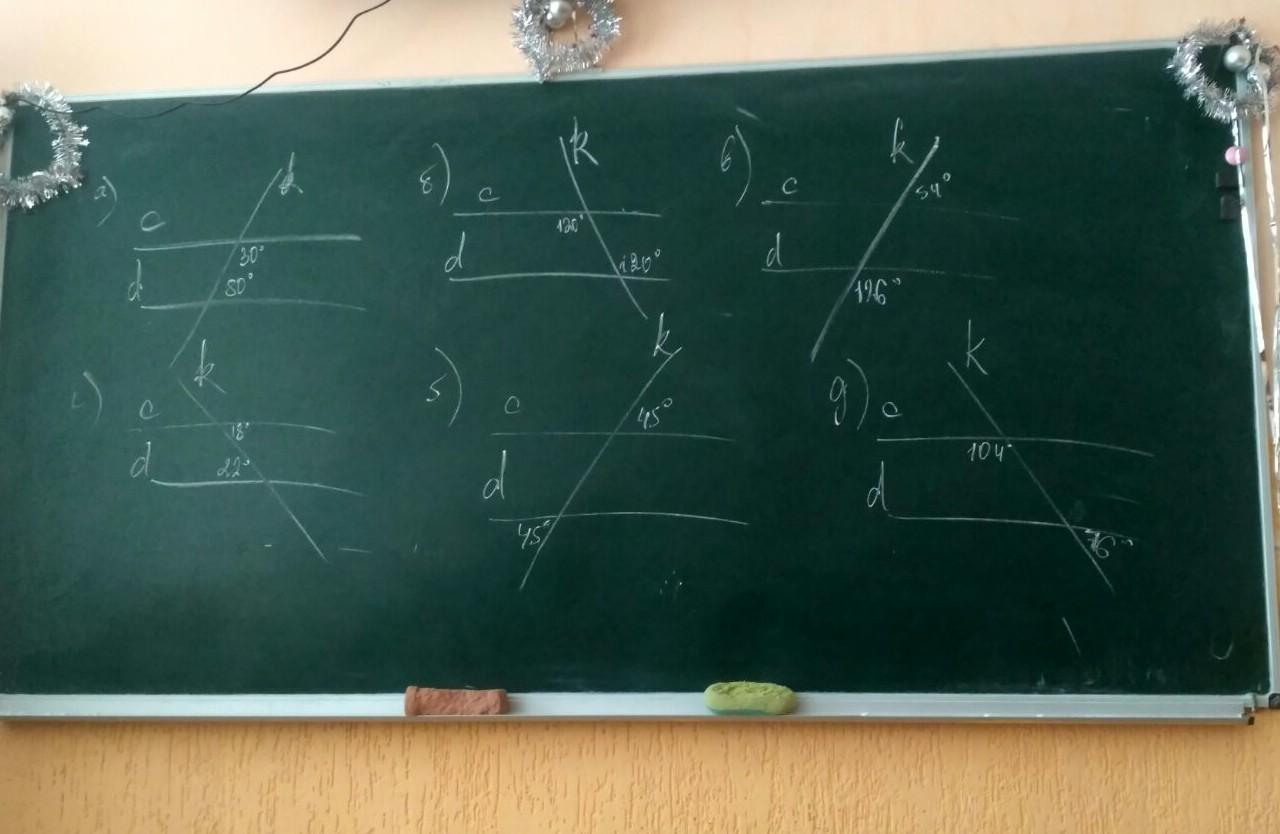 а)
k
c
30°
d
50°
б)
k
c
120°
d
120°
в)
k
c
54°
d
126°
г)
k
c
18°
d
22°
5)
k
c
45°
d
45°
g)
k
c
104°
d
76°